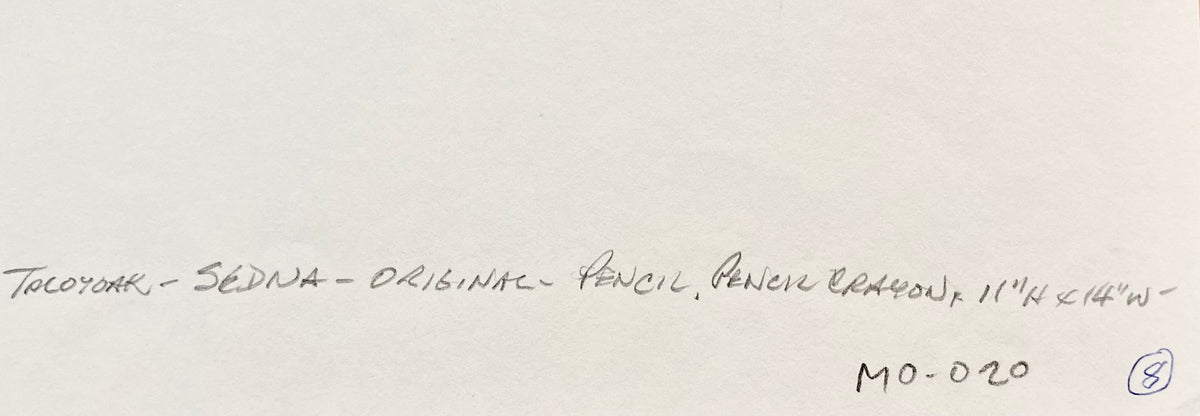 TALOYOAK - SEDNA - ORIGINAL - PENCIL, PENCIL CRAYON, 11"H x 14"W -
MO-020 8